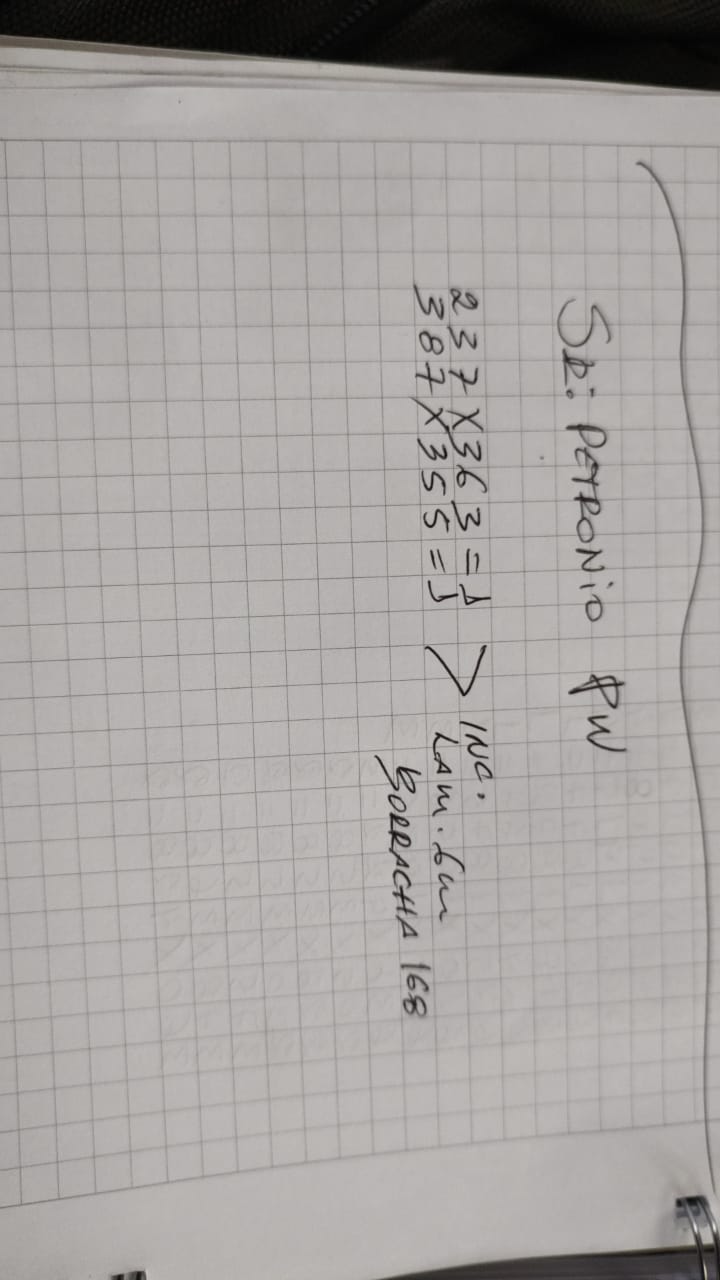 SR: PETRONIO PW
237X363=1
387X355=1
> INC.
LAM. 6m
BORRACHA 168